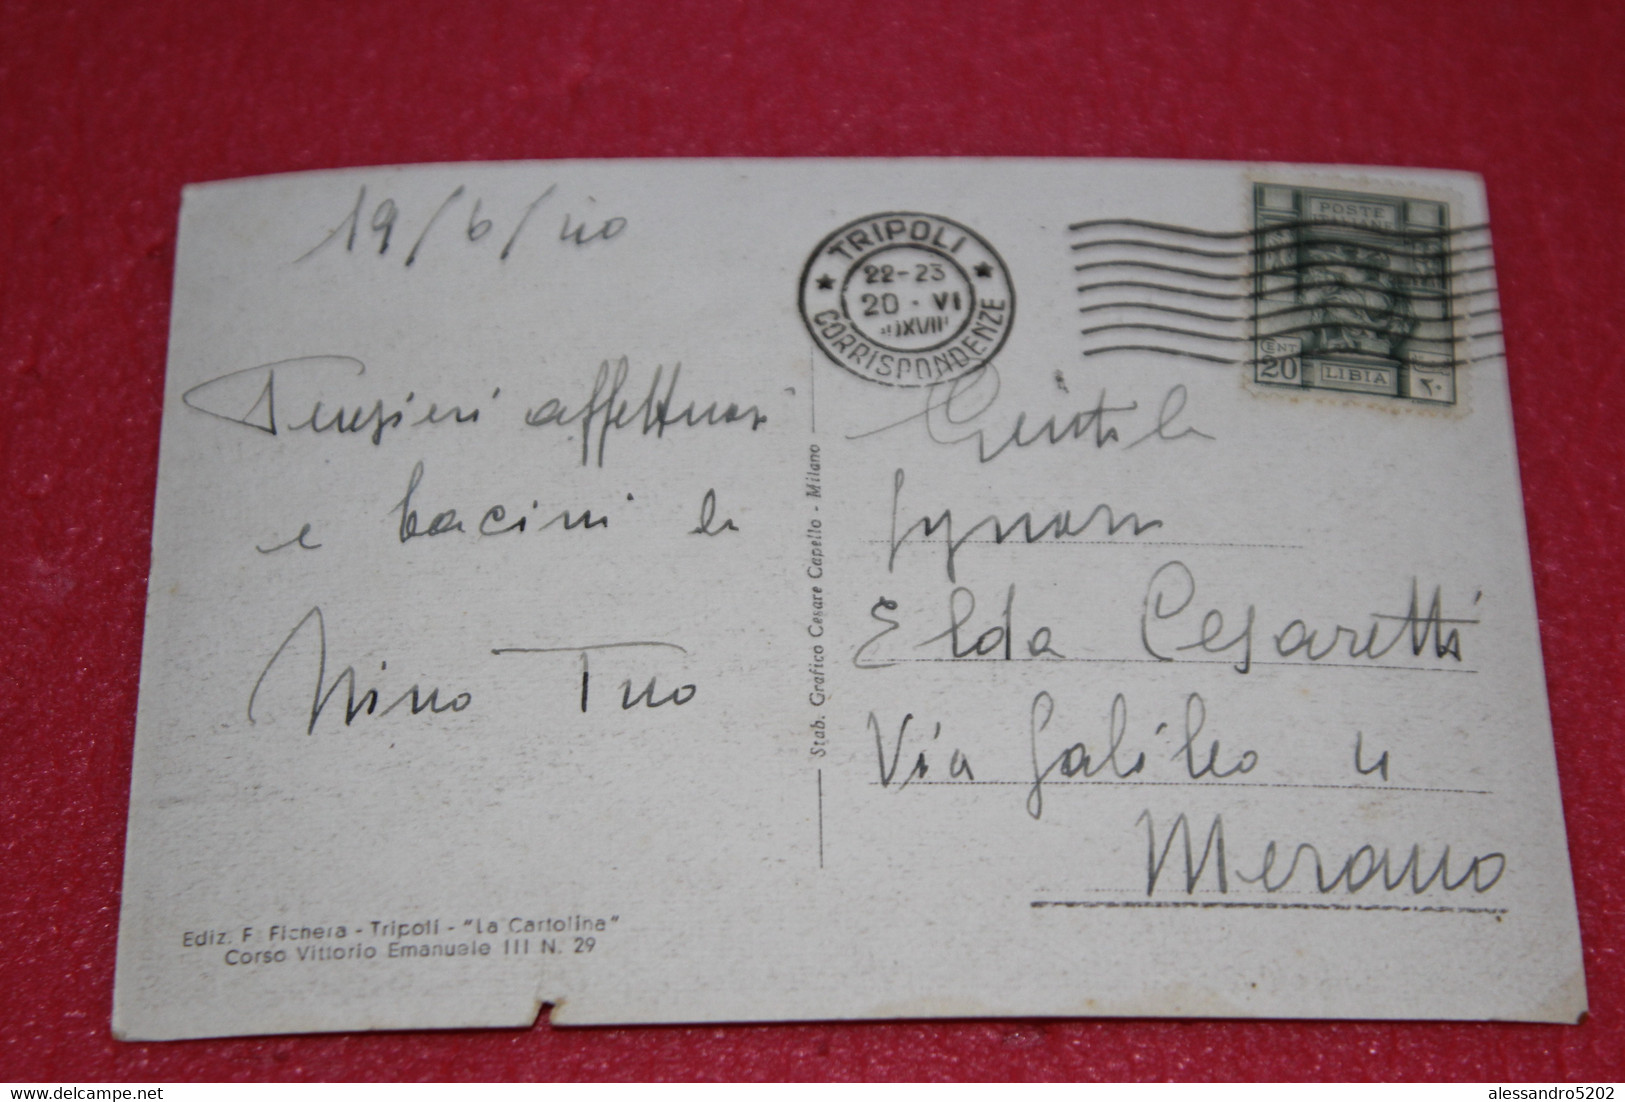 19/6/40
TRIPOLI
22-23
20 · VI
CORRISPONDENZE
POSTE
ITALIANE
CENT
20
LIBIA
٢٠
Pensieri affettuosi
e bacini
Nino Tuo
Gentile
Signora
Elda Cesaretti
Via Galileo 4
Merano
Stab. Grafico Cesare Capello - Milano
Ediz. F. Fichera - Tripoli - "La Cartolina"
Corso Vittorio Emanuele III N. 29
2021 Jul 14
alessandro5202